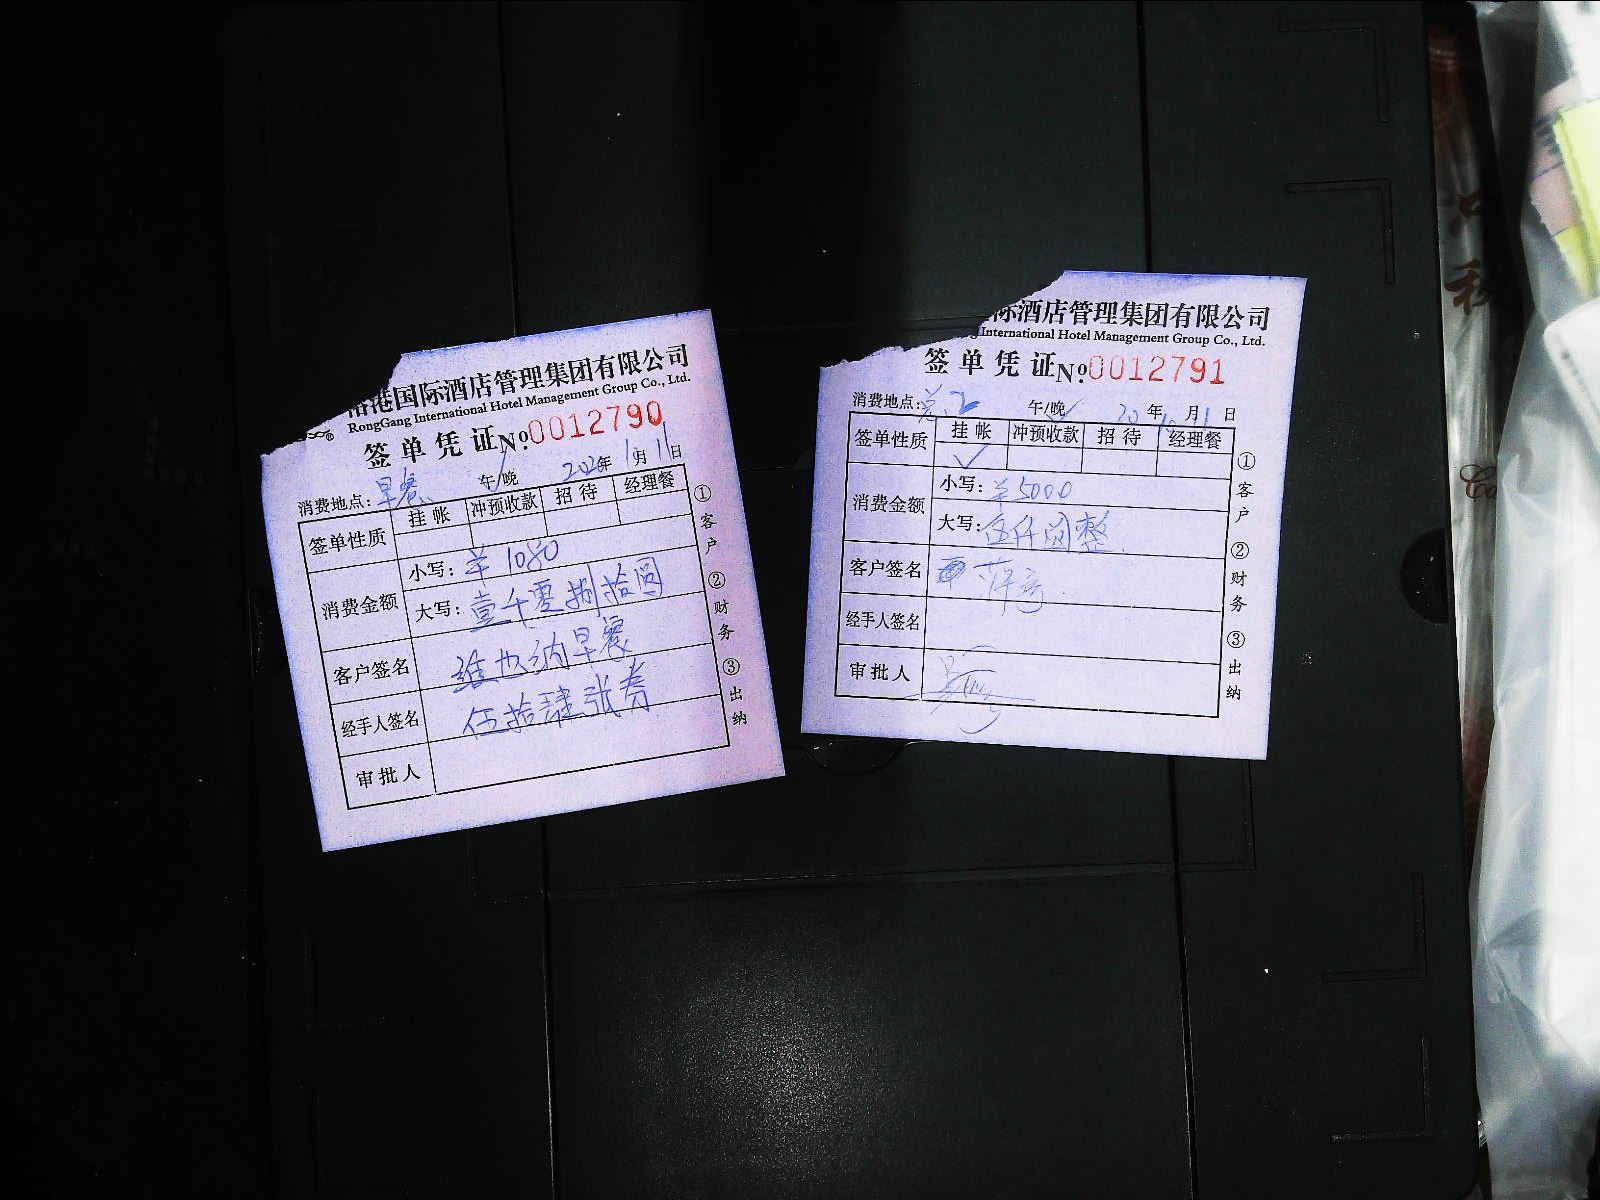 港国际酒店管理集团有限公司
RongGang International Hotel Management Group Co., Ltd.
签单凭证 No.0012790
消费地点：早餐 午/晚 年 1月11日
签单性质 挂帐 冲预收款 招待 经理餐
消费金额 小写：¥1080
大写：壹千零捌拾圆
客户签名 维也纳早餐
经手人签名 伍拾肆张券
审批人
①客户 ②财务 ③出纳
际酒店管理集团有限公司
International Hotel Management Group Co., Ltd.
签单凭证 No.0012791
消费地点： 午/晚 20 年 月 日
签单性质 挂帐 冲预收款 招待 经理餐
✓
消费金额 小写：¥5000
大写：伍仟圆整
客户签名
经手人签名
审批人
①客户 ②财务 ③出纳